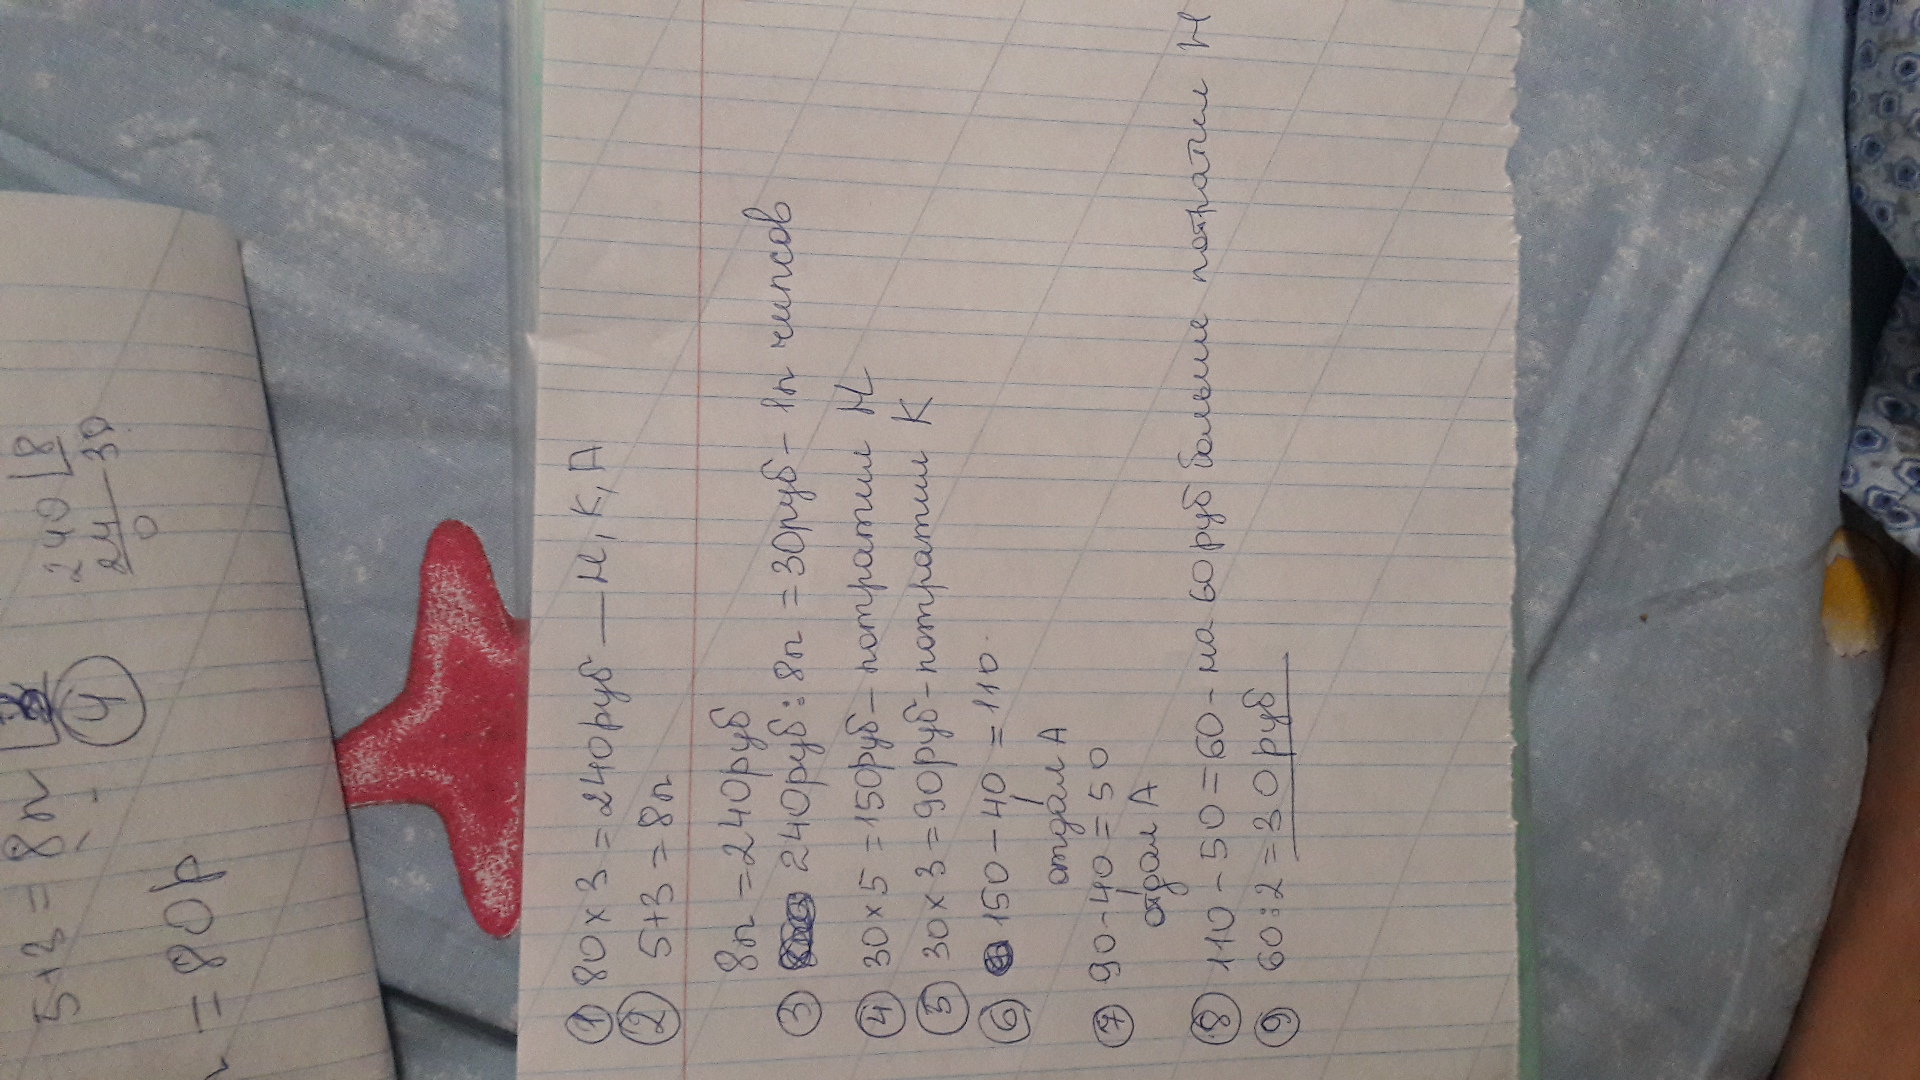 5+3 = 8п
④
240 8
24 30
0
= 80р
① 80 х 3 = 240руб — Н, К, А
② 5+3 = 8п
8п = 240руб
③ 240руб : 8п = 30руб - 1п чипсов
④ 30 х 5 = 150руб - потратил Н
⑤ 30 х 3 = 90руб - потратил К
⑥ 150 - 40 = 110
отдал А
⑦ 90 - 40 = 50
отдал А
⑧ 110 - 50 = 60 - на 60 руб больше потратил Н
⑨ 60 : 2 = 30 руб